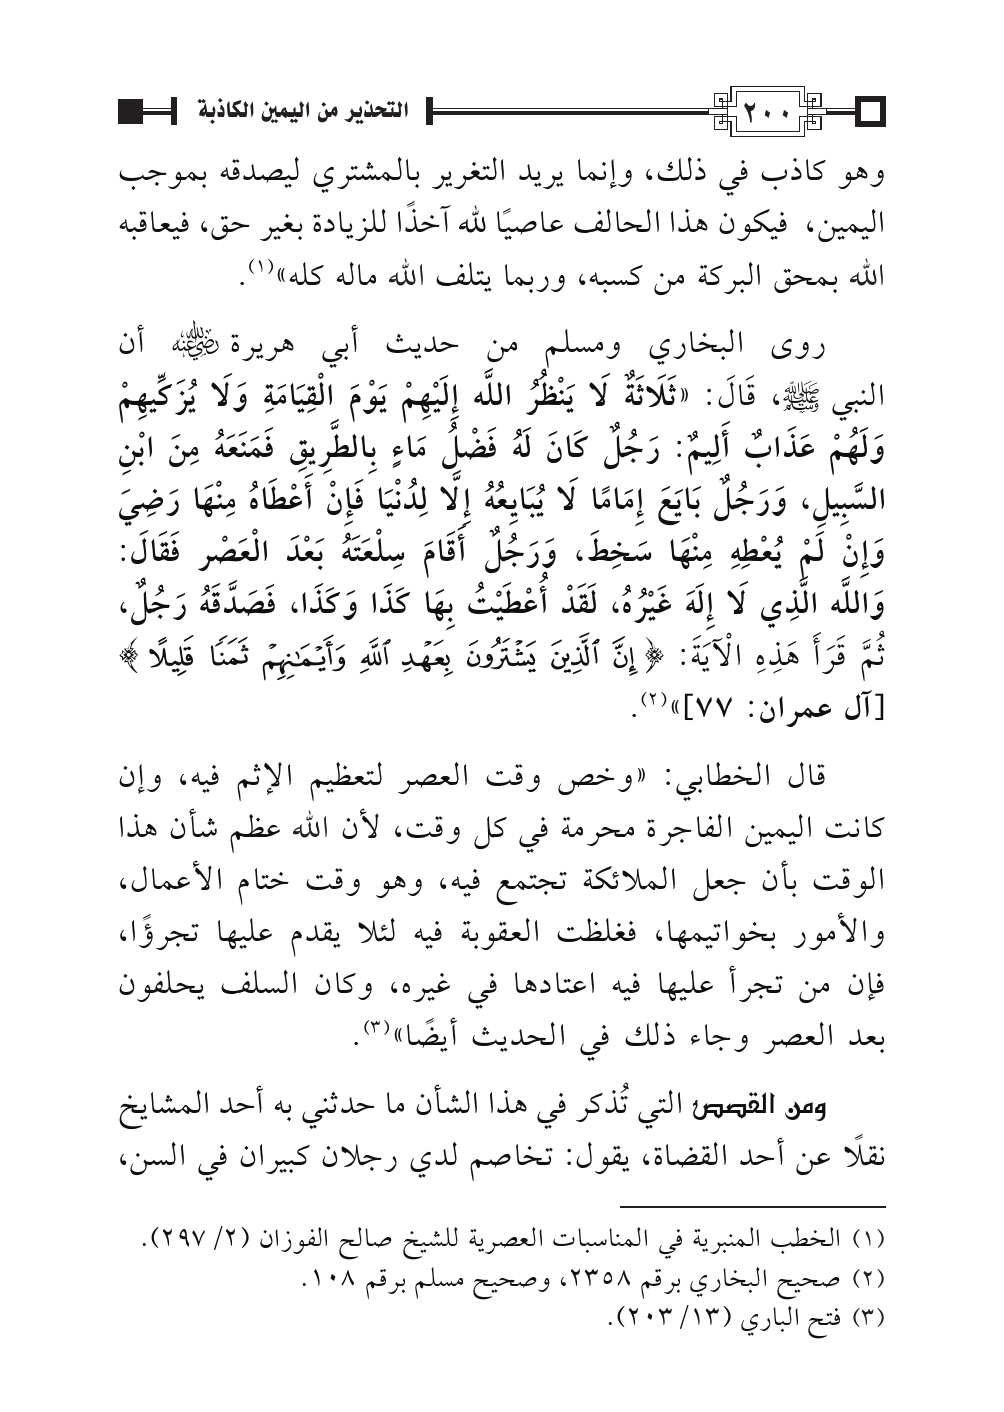 ٢٠٠ التحذير من اليمين الكاذبة
وهو كاذب في ذلك، وإنما يريد التغرير بالمشتري ليصدقه بموجب
اليمين، فيكون هذا الحالف عاصيًا لله آخذًا للزيادة بغير حق، فيعاقبه
الله بمحق البركة من كسبه، وربما يتلف الله ماله كله»(١).
روى البخاري ومسلم من حديث أبي هريرة رضي الله عنه أن
النبي ﷺ، قَالَ: «ثَلَاثَةٌ لَا يَنْظُرُ اللَّه إِلَيْهِمْ يَوْمَ الْقِيَامَةِ وَلَا يُزَكِّيهِمْ
وَلَهُمْ عَذَابٌ أَلِيمٌ: رَجُلٌ كَانَ لَهُ فَضْلُ مَاءٍ بِالطَّرِيقِ فَمَنَعَهُ مِنَ ابْنِ
السَّبِيلِ، وَرَجُلٌ بَايَعَ إِمَامًا لَا يُبَايِعُهُ إِلَّا لِدُنْيَا فَإِنْ أَعْطَاهُ مِنْهَا رَضِيَ
وَإِنْ لَمْ يُعْطِهِ مِنْهَا سَخِطَ، وَرَجُلٌ أَقَامَ سِلْعَتَهُ بَعْدَ الْعَصْرِ فَقَالَ:
وَاللَّه الَّذِي لَا إِلَهَ غَيْرُهُ، لَقَدْ أُعْطَيْتُ بِهَا كَذَا وَكَذَا، فَصَدَّقَهُ رَجُلٌ،
ثُمَّ قَرَأَ هَذِهِ الْآيَةَ: ﴿ إِنَّ ٱلَّذِينَ يَشْتَرُونَ بِعَهْدِ ٱللَّهِ وَأَيْمَٰنِهِمْ ثَمَنًا قَلِيلًا ﴾
[آل عمران: ٧٧]»(٢).
قال الخطابي: «وخص وقت العصر لتعظيم الإثم فيه، وإن
كانت اليمين الفاجرة محرمة في كل وقت، لأن الله عظم شأن هذا
الوقت بأن جعل الملائكة تجتمع فيه، وهو وقت ختام الأعمال،
والأمور بخواتيمها، فغلظت العقوبة فيه لئلا يقدم عليها تجرؤًا،
فإن من تجرأ عليها فيه اعتادها في غيره، وكان السلف يحلفون
بعد العصر وجاء ذلك في الحديث أيضًا»(٣).
ومن القصص التي تُذكر في هذا الشأن ما حدثني به أحد المشايخ
نقلًا عن أحد القضاة، يقول: تخاصم لدي رجلان كبيران في السن،
(١) الخطب المنبرية في المناسبات العصرية للشيخ صالح الفوزان (٢/ ٢٩٧).
(٢) صحيح البخاري برقم ٢٣٥٨، وصحيح مسلم برقم ١٠٨.
(٣) فتح الباري (١٣/ ٢٠٣).